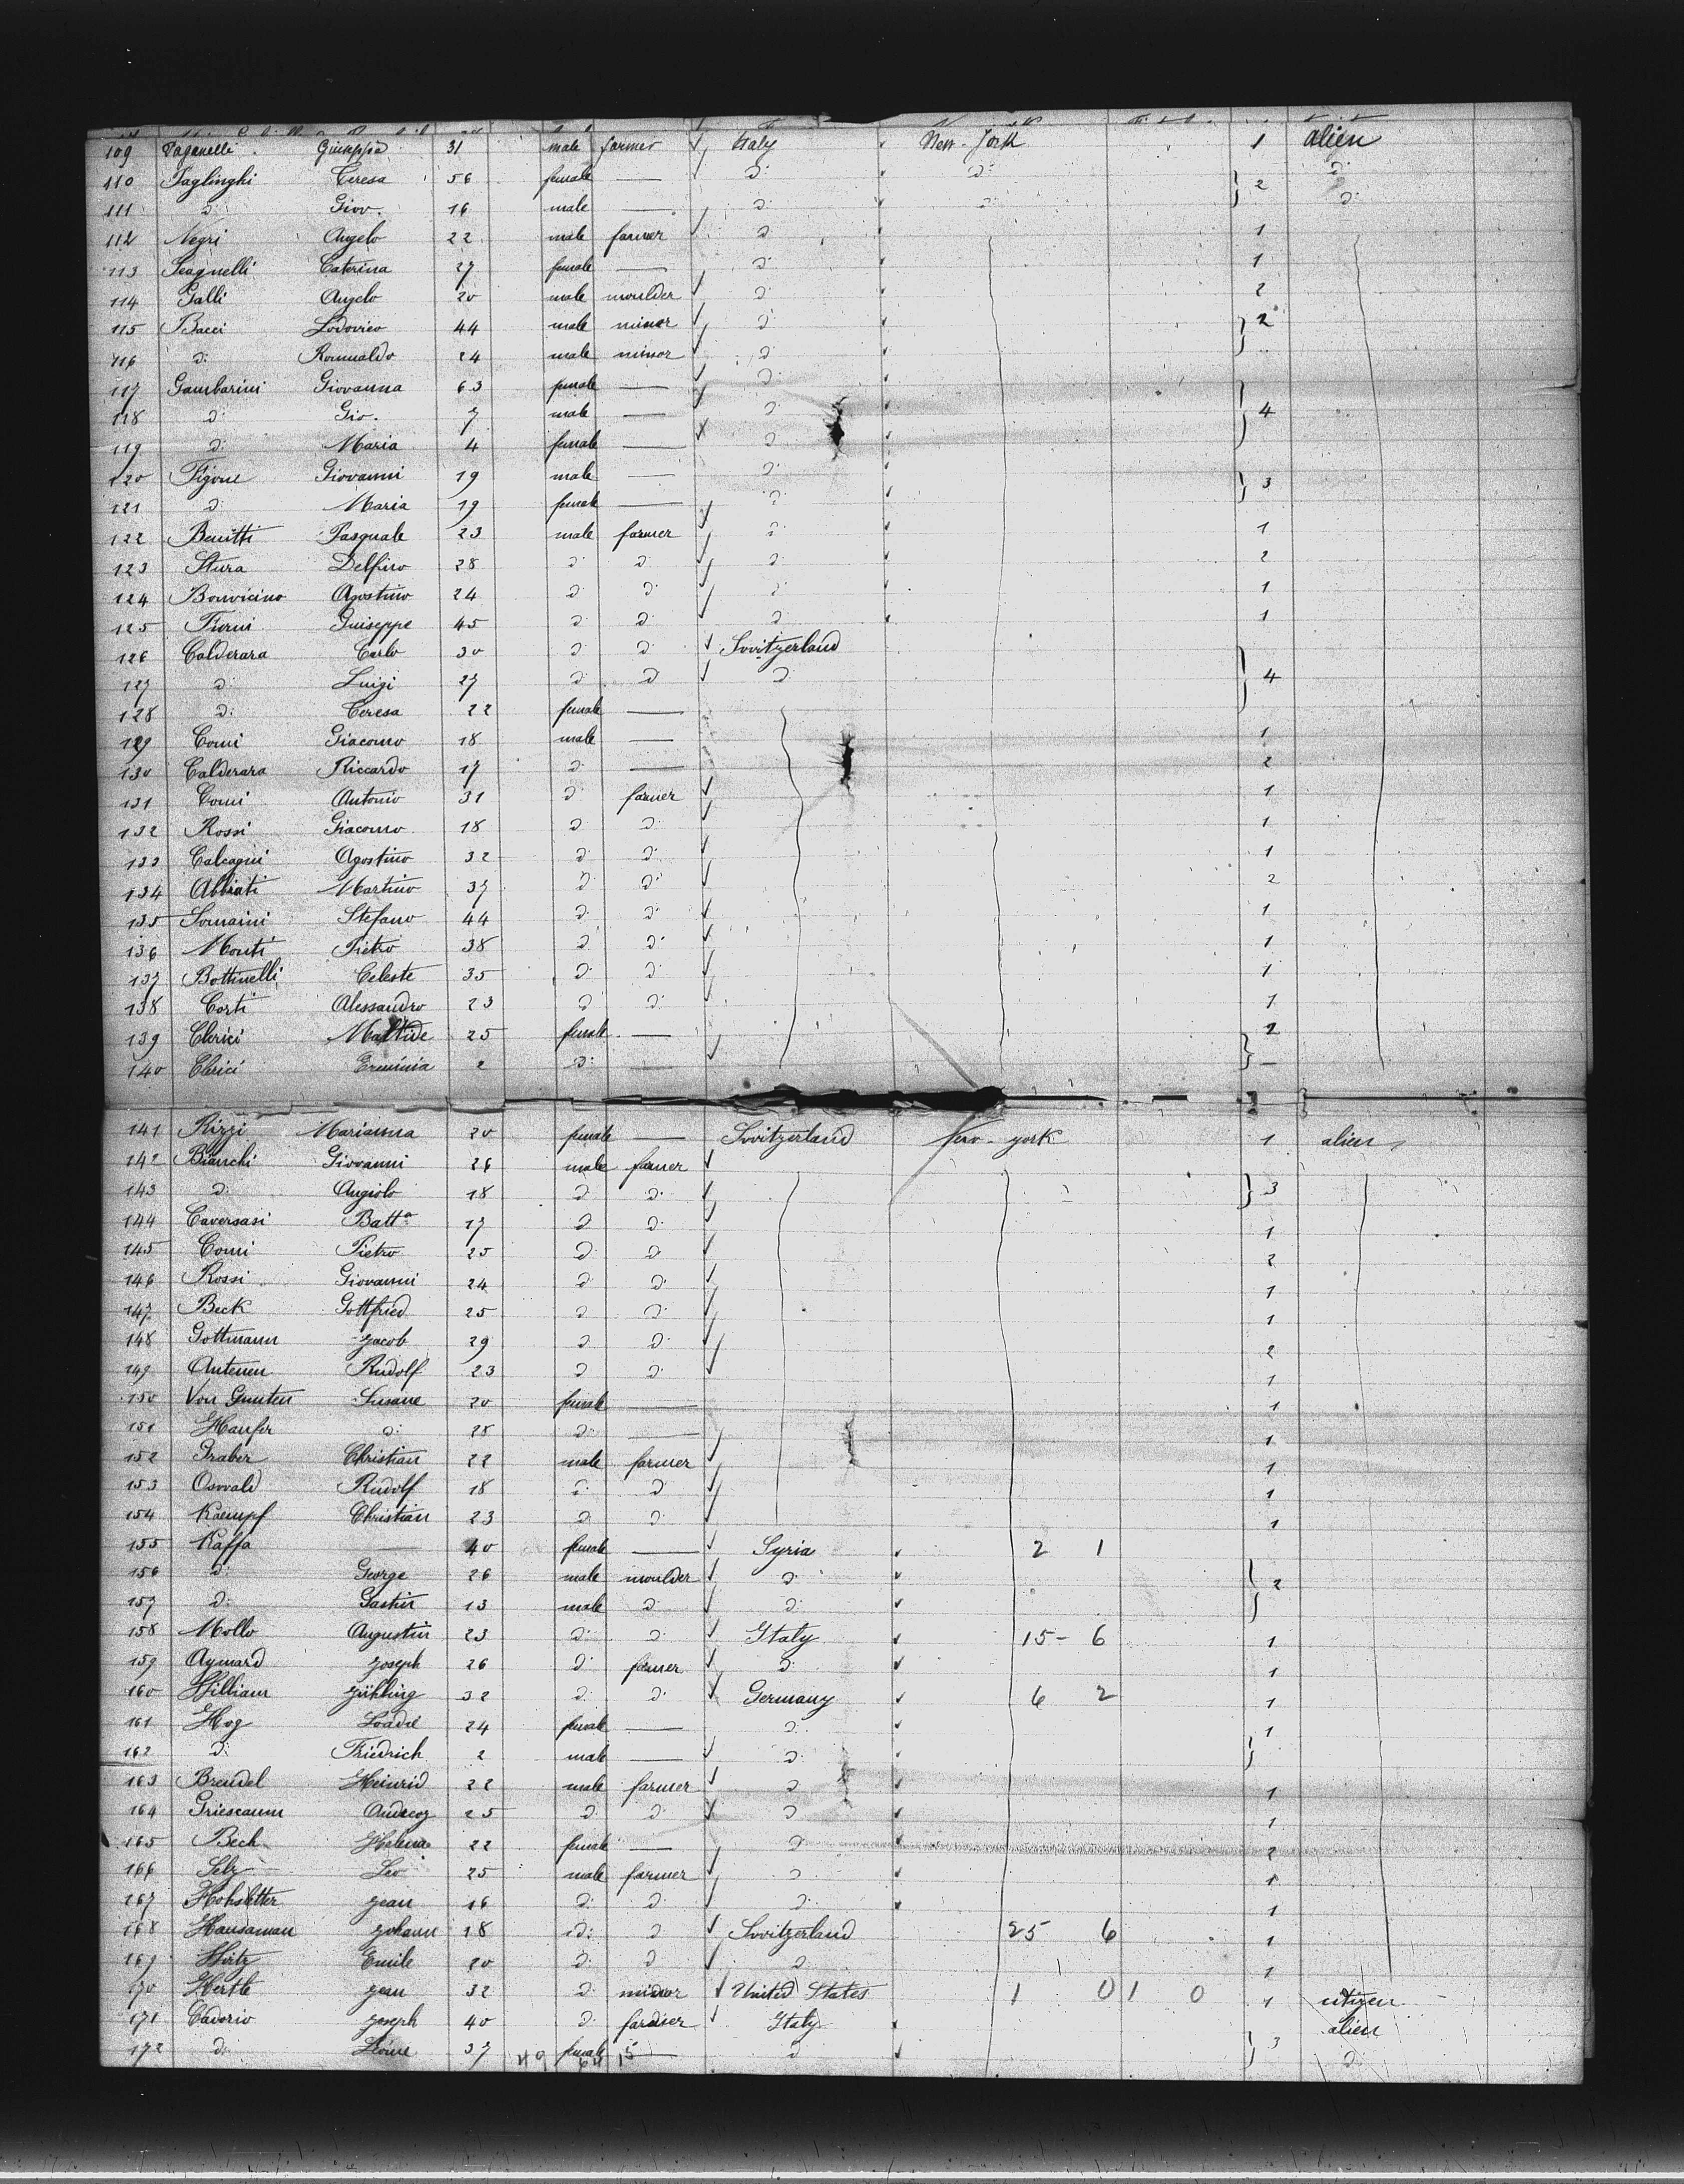 109 Paganelli Giuseppe 31 male farmer Italy New-York 1 alien
110 Taglinghi Teresa 56 female — d: d: 2 d:
111 d: Giov. 16 male — d: d: d:
112 Negri Angelo 22 male farmer d: 1
113 Scagnelli Caterina 27 female — d: 1
114 Galli Angelo 20 male moulder d: 2
115 Bacci Lodovico 44 male minor d: 2
116 d: Romualdo 24 male minor d:
117 Gambarini Giovanna 63 female — d:
118 d: Gio. 7 male — d: 4
119 d: Maria 4 female — d:
120 Figone Giovanni 19 male — d: 3
121 d: Maria 19 female — d:
122 Pasquale 23 male farmer d: 1
123 Stura Delfino 28 d: d: d: 2
124 Bonvicino Agostino 24 d: d: d: 1
125 Fiorni Guiseppe 45 d: d: d: 1
126 Calderara Carlo 30 d: d: Switzerland
127 d: Luigi 27 d: d: d: 4
128 d: Teresa 22 female —
129 Comi Giacomo 18 male — 1
130 Calderara Riccardo 17 d: — 2
131 Comi Antonio 31 d: farmer 1
132 Rossi Giacomo 18 d: d: 1
133 Calcagni Agostino 32 d: d: 1
134 Abbiati Martino 37 d: d: 2
135 Somaini Stefano 44 d: d: 1
136 Monti Pietro 38 d: d: 1
137 Bottinelli Celeste 35 d: d: 1
138 Corti Alessandro 23 d: d: 1
139 Clerici Maltide 25 female — 2
140 Clerici Erminia 2 d: — —
141 Rizzi Marianna 20 female — Switzerland New-york 1 alien
142 Bianchi Giovanni 26 male farmer
143 d: Angiolo 18 d: d: 3
144 Caversasi Batt.a 17 d: d: 1
145 Comi Pietro 25 d: d: 2
146 Rossi Giovanni 24 d: d: 1
147 Beck Gottfried 25 d: d: 1
148 Gottmann Jacob 29 d: d: 2
149 Antenen Rudolf 23 d: d: 1
150 Von Gunten Susane 20 female — 1
151 d: 28 d: — 1
152 Graber Christian 22 male farmer 1
153 Oswald Rudolf 18 d: d: 1
154 Kaempf Christian 23 d: d: 1
155 Kaffa — 40 female — Syria 2 1
156 d: George 26 male moulder d: 2
157 d: 13 male d: d:
158 Mollo Augustin 23 d: d: Italy 15- 6 1
159 Aymard Joseph 26 d: farmer d: 1
160 William 32 d: d: Germany 6 2 1
161 Hog 24 female — d: 1
162 d: Friedrich 2 male — d:
163 Brendel Heinrid 22 male farmer d: 1
164 25 d: d: d: 1
165 Bech Helena 22 female — d: 2
166 Selz Leo 25 male farmer d: 1
167 Hohstetter Jean 16 d: d: d: 1
168 Hansaman Johann 18 d: d: Switzerland 25 6 1
169 Emile 20 d: d: d: 1
170 Hertle Jean 32 d: minor United States 1 0 1 0 1 citizen
171 Caderio Joseph 40 d: farmer Italy alien
172 d: 37 female — d: 3 d:
49 64 15